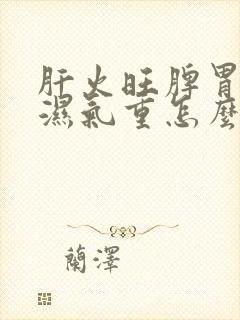 肝火旺脾胃
濕氣重怎麼
蘭澤